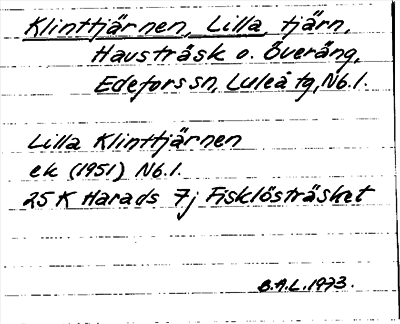 Klinttjärnen, Lilla, tjärn,
Havsträsk o. Överäng,
Edefors sn, Luleå tg, Nb.l.
Lilla Klinttjärnen
ek (1951) Nb.l.
25 K Harads 7j Fisklösträsket
B.A.L. 1973.